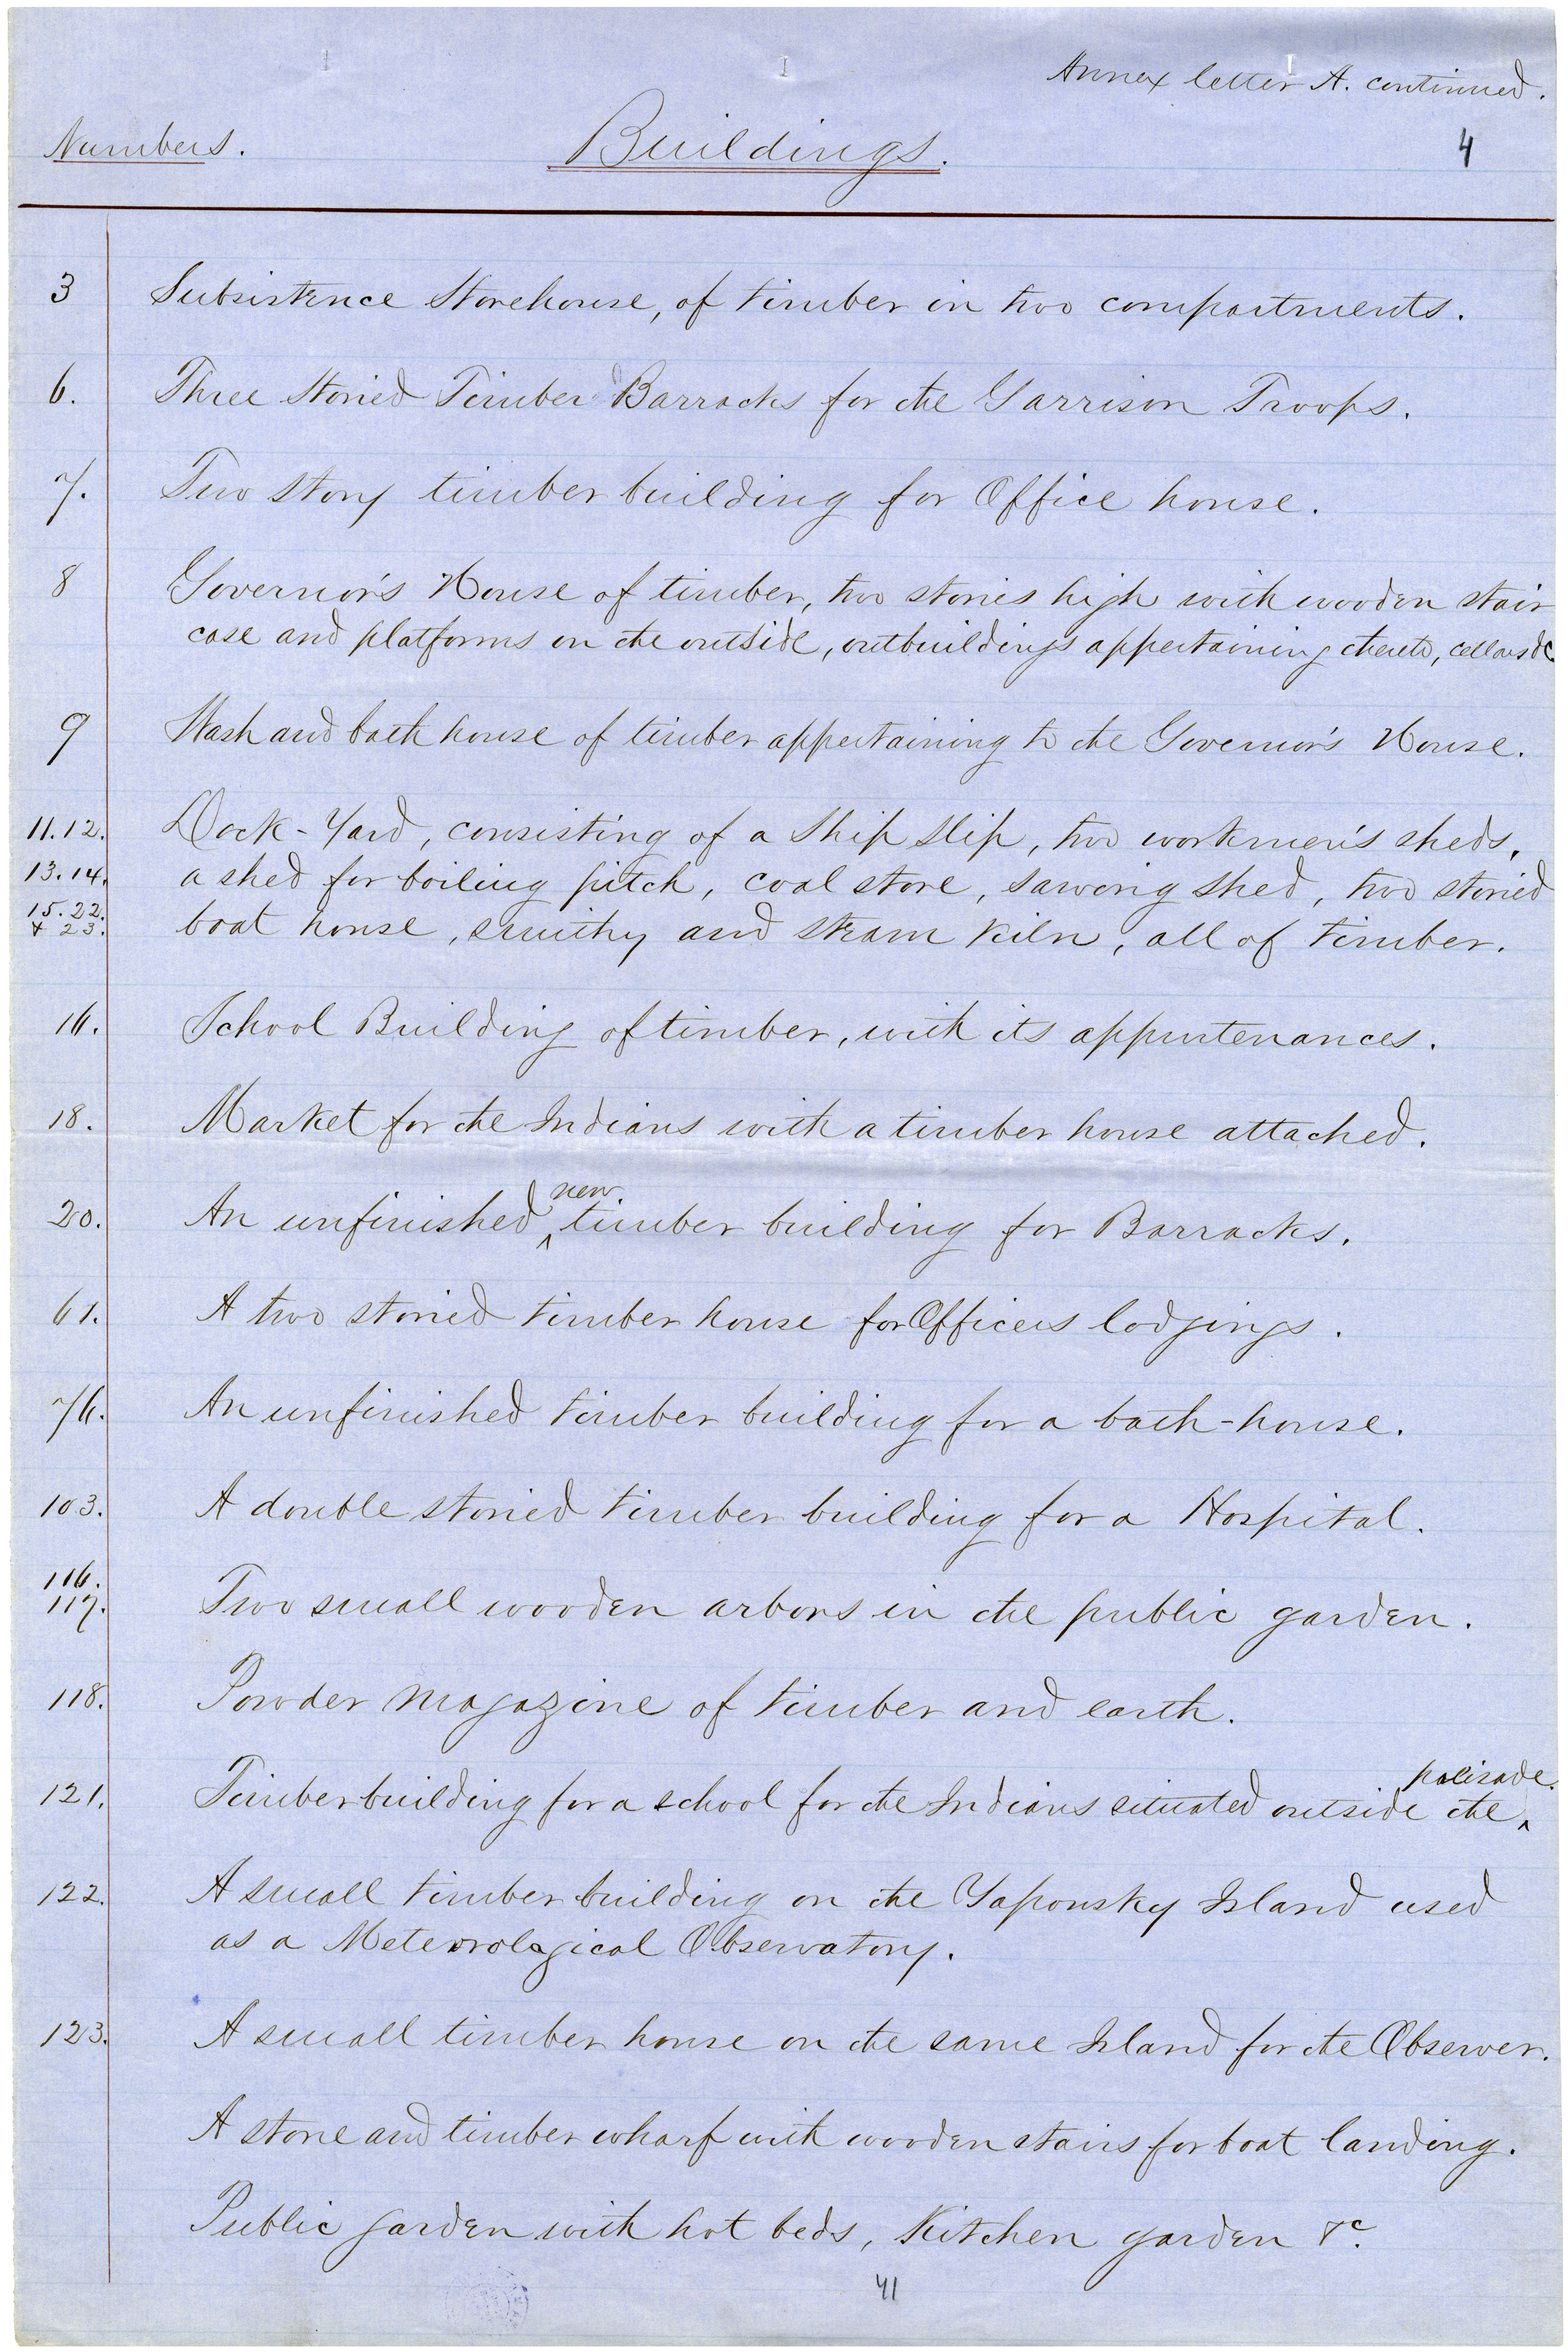 Annex letter A. continued.
Numbers. Buildings. 4
3 Subsistence Storehouse, of timber in two compartments.
6. Three Storied Timber Barracks for the Garrison Troops.
7. Two story timber building for Office house.
8 Governor's House of timber, two stories high with wooden stair
case and platforms on the outside, outbuildings appertaining thereto, cellars &c
9 Wash and bath house of timber appertaining to the Governor's House.
11.12. Dock-Yard, consisting of a Ship Slip, two workmen's sheds,
13.14. a shed for boiling pitch, coal store, sawing shed, two storied
15.22.
& 23. boat house, smithy and steam kiln, all of timber.
16. School Building of timber, with its appurtenances.
18. Market for the Indians with a timber house attached.
20. An unfinished new timber building for Barracks.
61. A two storied timber house for Officers lodgings.
76. An unfinished timber building for a bath-house.
103. A double storied timber building for a Hospital.
116.
117. Two small wooden arbors in the public garden.
118. Powder magazine of timber and earth.
121. Timber building for a school for the Indians situated outside the palisade.
122. A small timber building on the Yaponsky Island used
as a Meteorological Observatory.
123. A small timber house on the same Island for the Observer.
A stone and timber wharf with wooden stairs for boat landing.
Public garden with hot beds, Kitchen garden &c.
41